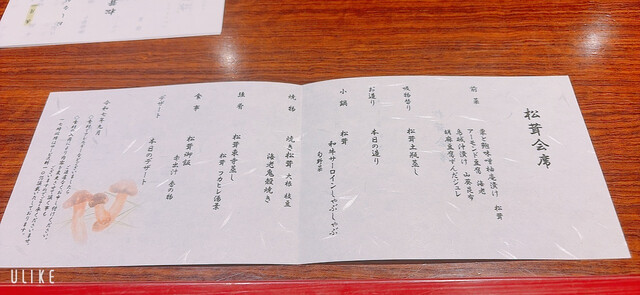 松茸会席
前菜
栗と鮑味噌柚庵漬け 松茸
アーモンド豆腐 海老
烏賊沖漬け 山葵昆布
胡麻豆腐ずんだジュレ
吸物替り
松茸土瓶蒸し
お造り
本日の造り
小鍋
松茸
和牛サーロインしゃぶしゃぶ
旬野菜
焼物
焼き松茸 大根 枝豆
海老鬼殻焼き
強肴
松茸東寺蒸し
松茸フカヒレ湯葉
食事
松茸御飯
赤出汁 香の物
デザート
本日のデザート
令和七年九月
ULIKE